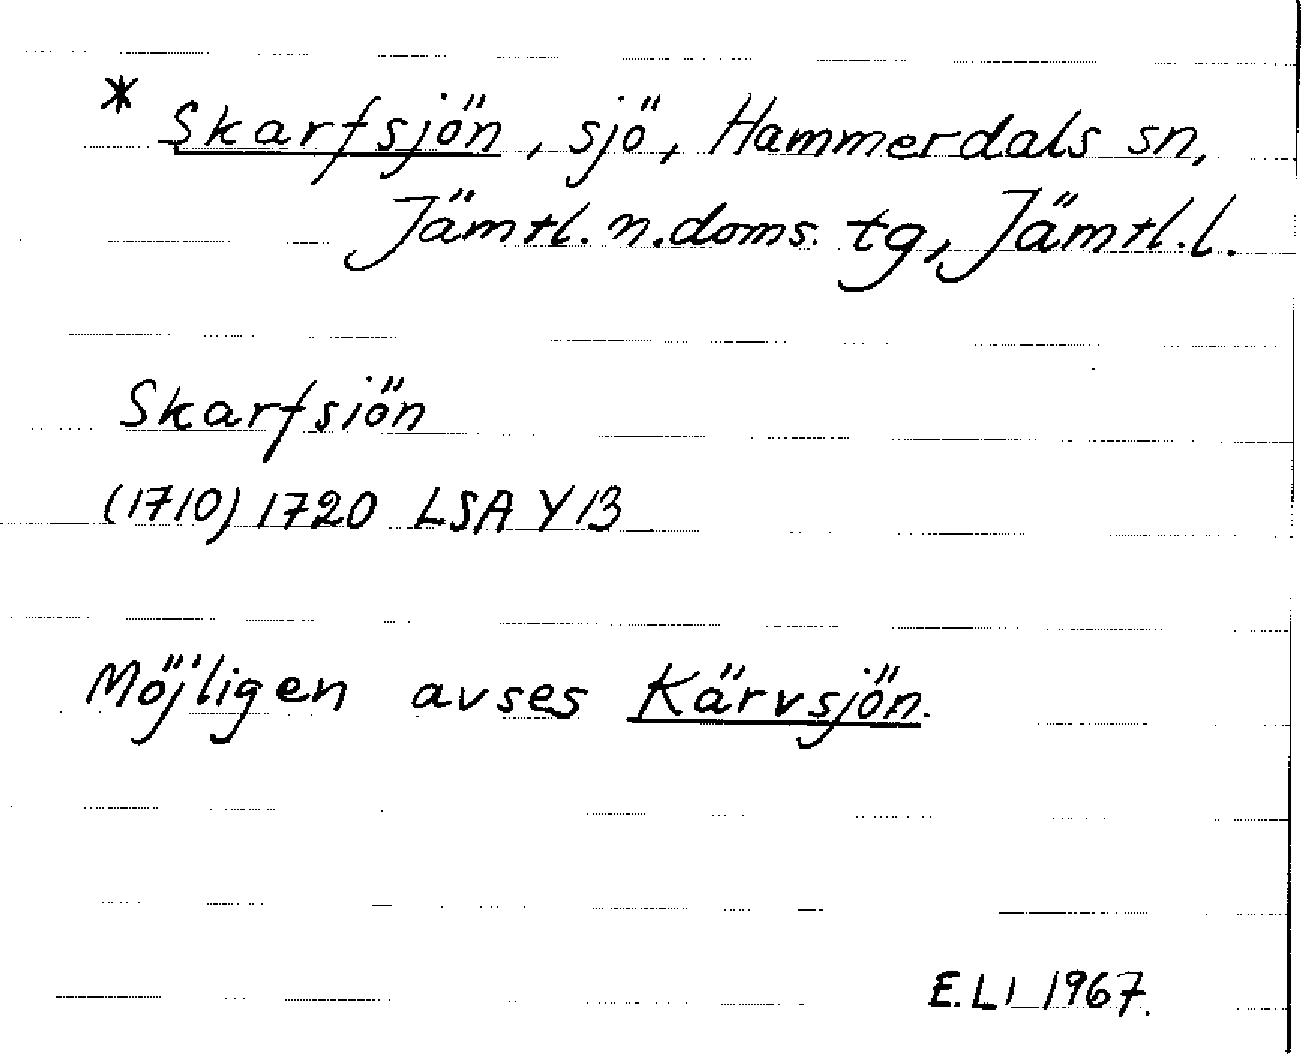 * Skarfsjön, sjö, Hammerdals sn,
Jämtl. n. doms. tg, Jämtl. l.
Skarfsiön
(1710) 1720 LSA Y 13
Möjligen avses Kärvsjön.
E. LI 1967.